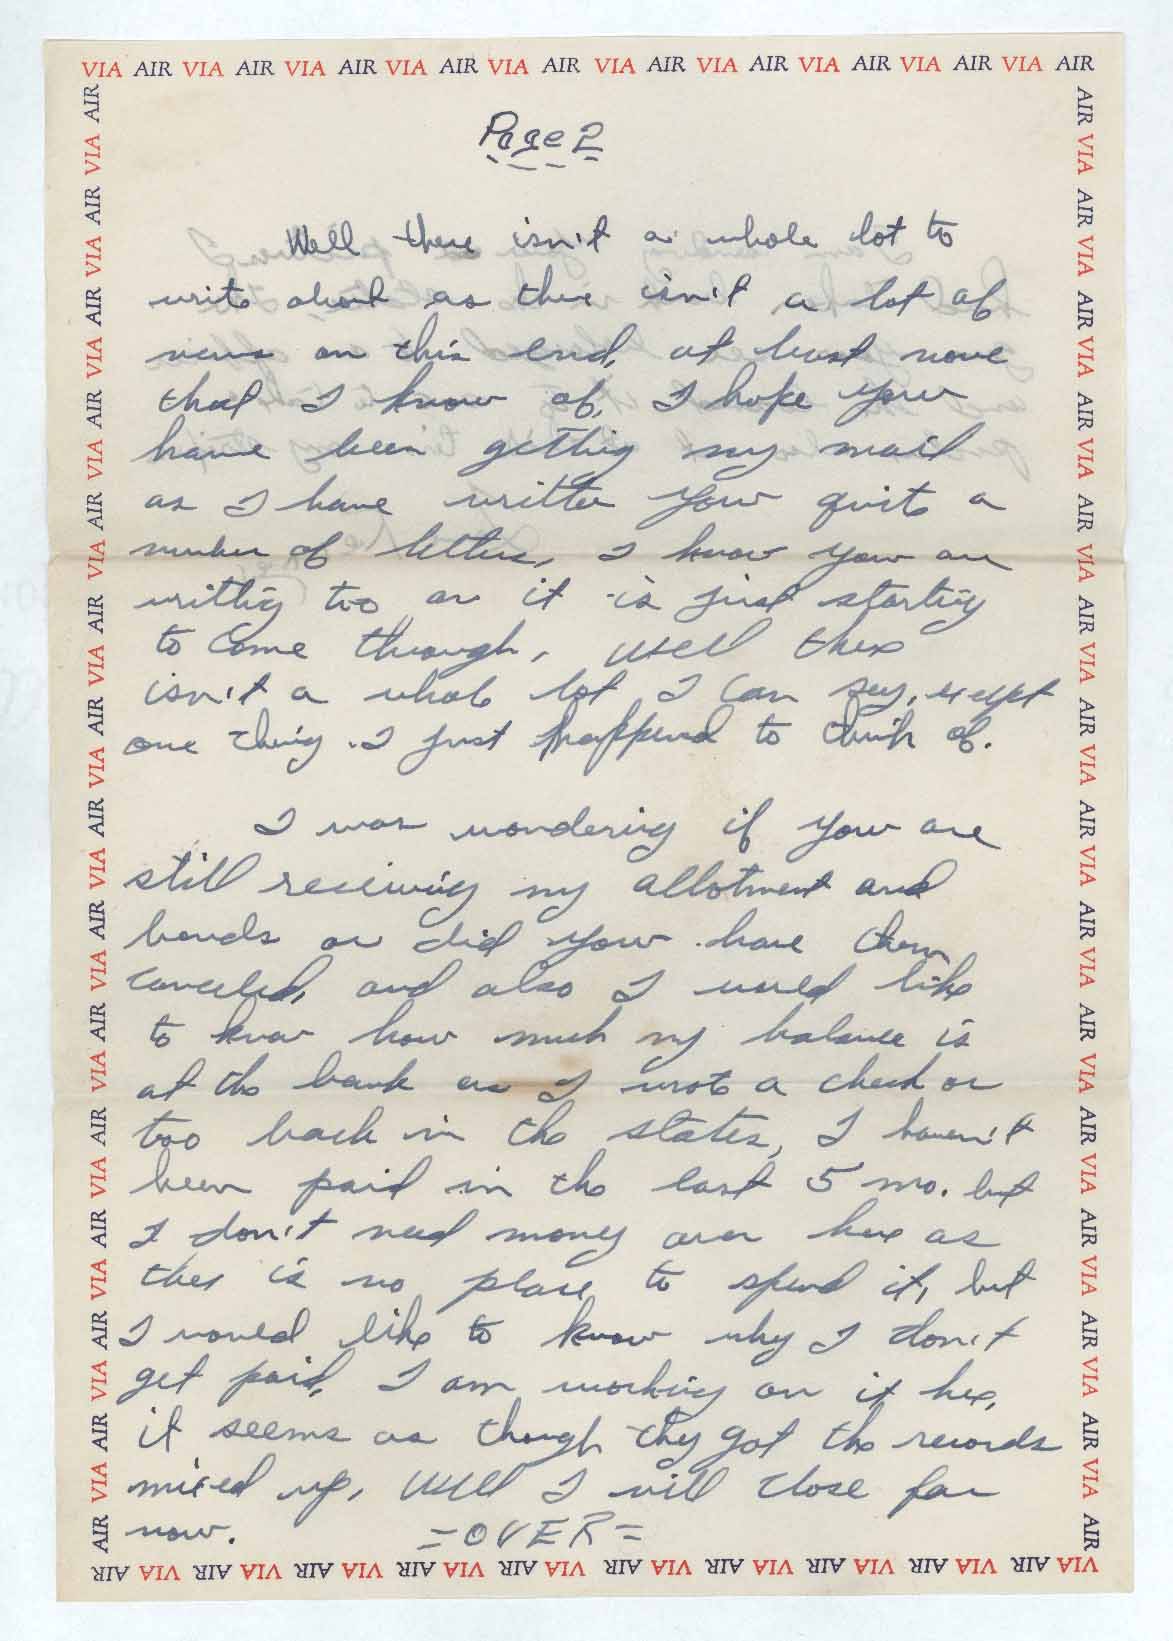 VIA AIR VIA AIR VIA AIR VIA AIR VIA AIR VIA AIR VIA AIR VIA AIR VIA AIR VIA AIR
Page 2
Well there isn't a whole lot to
write about as there isn't a lot of
news on this end, at least none
that I know of, I hope your
have been getting my mail
as I have written your quite a
number of letters, I know your are
writtig too as it is just startig
to come through, well there
isn't a whole lot I can say, except
one thing I just happend to think of.
I was wondering if your are
still receiving my allotment and
bonds or did your have them
canceled, and also I would like
to know how much my balance is
at the bank as I wrote a check or
too back in the states, I haven't
been paid in the last 5 mo. but
I don't need money over here as
ther is no place to spend it, but
I would like to know why I don't
get paid, I am working on it here,
it seems as though they got the records
mixed up, well I will close for
now. =OVER=
AIR VIA AIR VIA AIR VIA AIR VIA AIR VIA AIR VIA AIR VIA AIR VIA AIR VIA AIR VIA